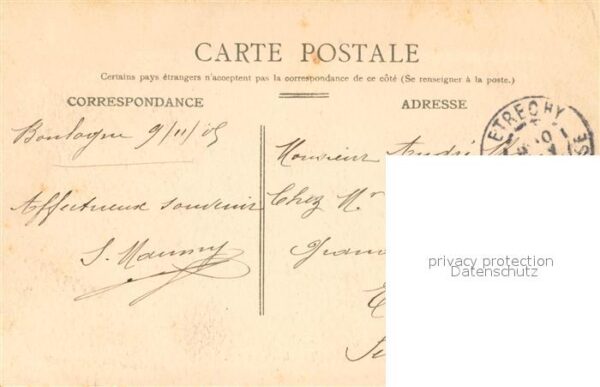 CARTE POSTALE
Certains pays étrangers n'acceptent pas la correspondance de ce côté (Se renseigner à la poste.)
CORRESPONDANCE
ADRESSE
ETRECHY
Boulogne 9/11/05
Monsieur André
Affectueux souvenir
Chez Mr
privacy protection
Datenschutz